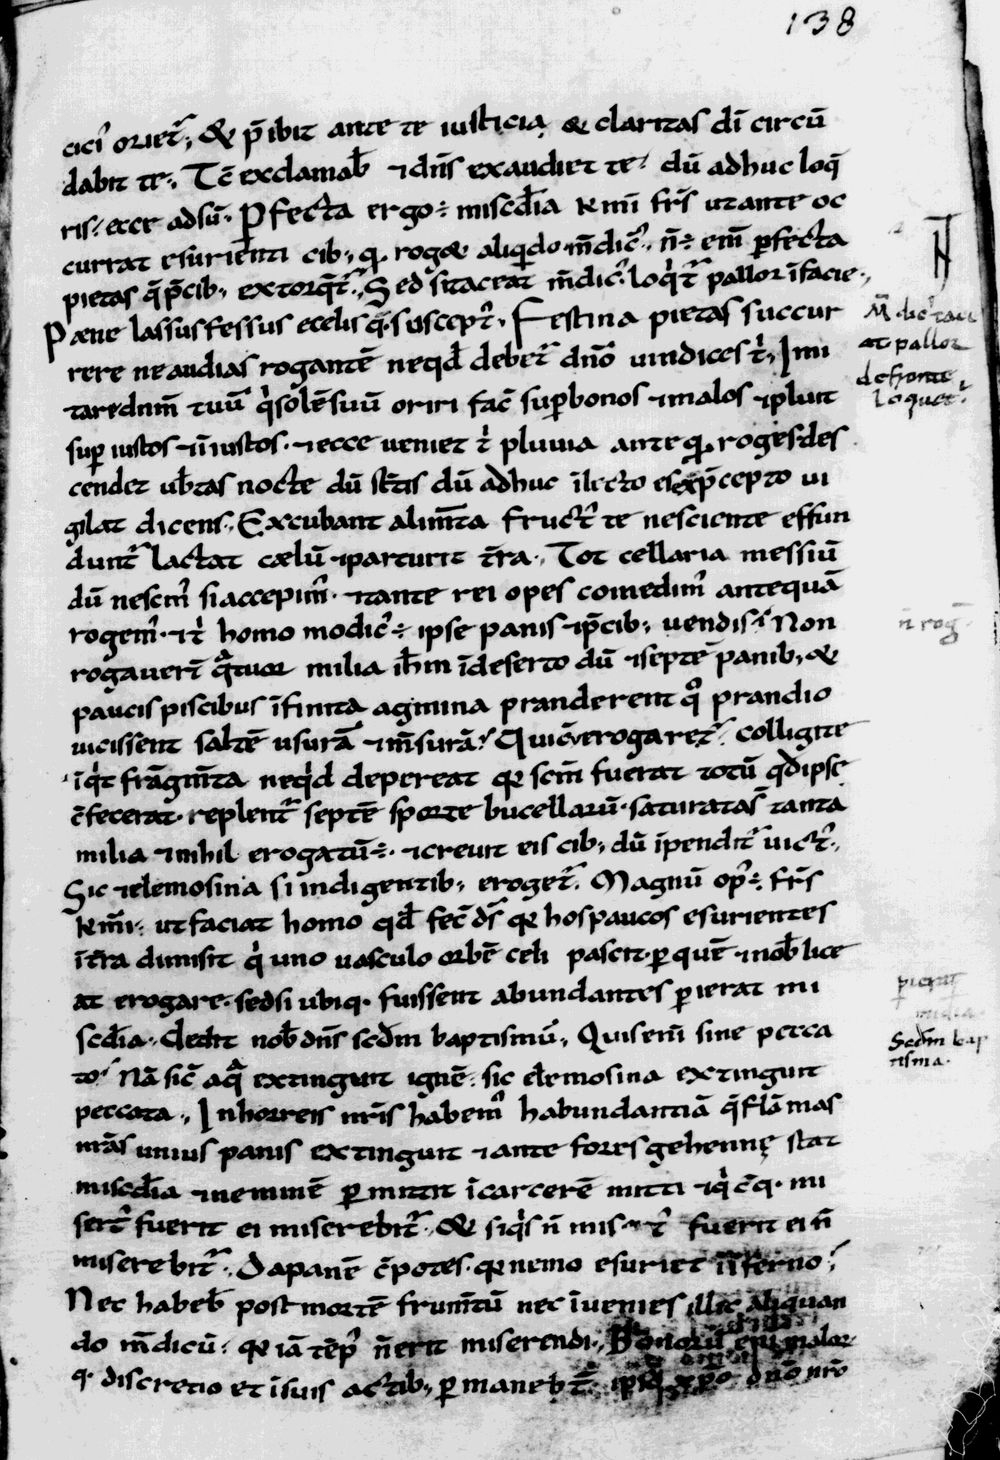 138
cicı̄ oriet᷑; & p̄ibit ante te iusticia, & claritas dı̄ circū
dabit te; Tc̄ exclamab̄ & dn̄s exaudiet te; dū adhuc loq̄
ris; ecce adsū. Pfecta ergo ÷ miscd̄ia km̄i fr̄s ut ante oc
currat esurienti cib; q̨ roget aliq̇do m̄dic᷒; n̄ ÷ em̄ ꝑfecta
pietas q̄ p̄cib; extorq̄t᷑; Sed si taceat m̄dic᷒ loq̇t᷑ pallor ı̄ facie;
Pæne lassus fessus ecclis q̨ suscept᷑; Festina pietas succur
rere ne audias rogantē neqd̄ debet᷑ dn̄o uindices t᷑; Imi
tare dnm̄ tuū q̇ solē suū oriri fac̄ suꝑ bonos & malos & pluit
suꝑ iustos & ı̄iustos. & ecce ueniet t᷑ pluuia ante q̨ roges des
cendet ub̄tas nocte dū st̄tis dū adhuc ı̄lecto es p̄cepto ui
gilat dicens; Excubant alim̄ta fruct᷑ te nesciente effun
dunt᷑ lactat cælū & parturit t̄ra; Tot cellaria messiū
dū nescim᷒ si accepim᷒. & tante rei opes comedim᷒ antequā
rogem᷒. & t᷑ homo modic᷒ ÷ ipse panis & p̄cib; uendis; Non
rogauer̄ q̄tuor milia ih̄m ı̄ deserto dū & septē panib; &
paucis piscibus ı̄finita agmina pranderent q̊ prandio
uicissent saltē usurā & m̄surā; Quic̄ erogaret᷑; colligite
ı̄q̇t frāgm̄ta neq̇d depereat q̨ scm̄ fuerat totū qd̄ ipse
c̄fecerat. replent᷑ septē sporte bucellarū. saturatas᷑ tanta
milia & nihil erogatū ÷. & creuit eis cib; dū ı̄pendit᷑ uict᷒;
Sic & elemosina si indigentib; eroget᷑. Magnū op᷒ ÷ fr̄s
km̄i. ut faciat homo qd̄ fec̄ ds̄ q̨ hos paucos esurientes
ı̄ t̄ra dimisit q̇ uno uasculo orbē celi pascit. ꝑ quē & nob̄ lice
at erogare. sed si ubiq̨ fuissent abundantes ꝑierat mi
scd̄ia. dedit nob̄ dn̄s scd̄m baptismū; Quis em̄ sine pecca
to; Nā sic̄ aq̄ extinguit ignē. sic elemosina extinguit
peccata; In horreis nr̄is habem᷒ habundantiā q̄ flāmas
nr̄as unius panis extinguit & ante fores gehennę stat
miscd̄ia & neminē ꝑmittit ı̄ carcerē mitti & q̇c̄q̨ mi
sert᷒ fuerit ei miserebit᷑. & siq̇s n̄ mis᷑t᷒ fuerit ei n̄
miserebit᷑. Da panē c̄ potes. q̨ nemo esuriet ı̄ ı̄ferno;
Nec habeb̄ post mortē frum̄tū nec ı̄uenies illic aliquan
do m̄dicū. q̨ iā tēp᷒ n̄ erit miserendi; Bonorū em̄ malor
q̨ discretio et ı̄ suis actib; ꝑmanebt̄ xp̄o dn̄o nr̄o
M̄dic᷒ tace
at pallor
de fronte
loquet᷑
n̄ roḡ
Scd̄m bap
tisma.